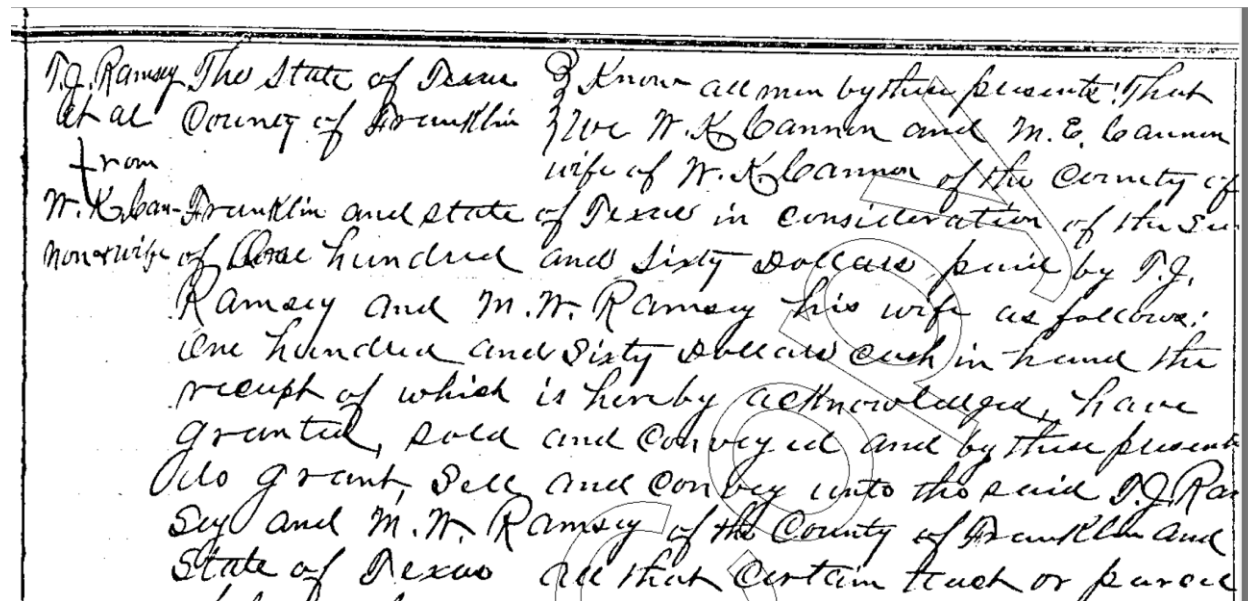 T.J. Ramsey The State of Texas } Know all men by these presents: That
et al County of Franklin } We W. K. Cannon and M. E. Cannon
from wife of W. K. Cannon of the County of
W. K. Can- Franklin and state of Texas in consideration of the Su
non & wife of One hundred and Sixty Dollars paid by T.J.
Ramsey and M. W. Ramsey his wife as follows:
One hundred and Sixty Dollars cash in hand the
receipt of which is hereby acknowledged, have
granted, sold and conveyed and by these presents
do grant, Sell and convey unto the said T.J. Ram
sey and M. W. Ramsey of the County of Franklin and
State of Texas all that certain tract or parcel
COPY